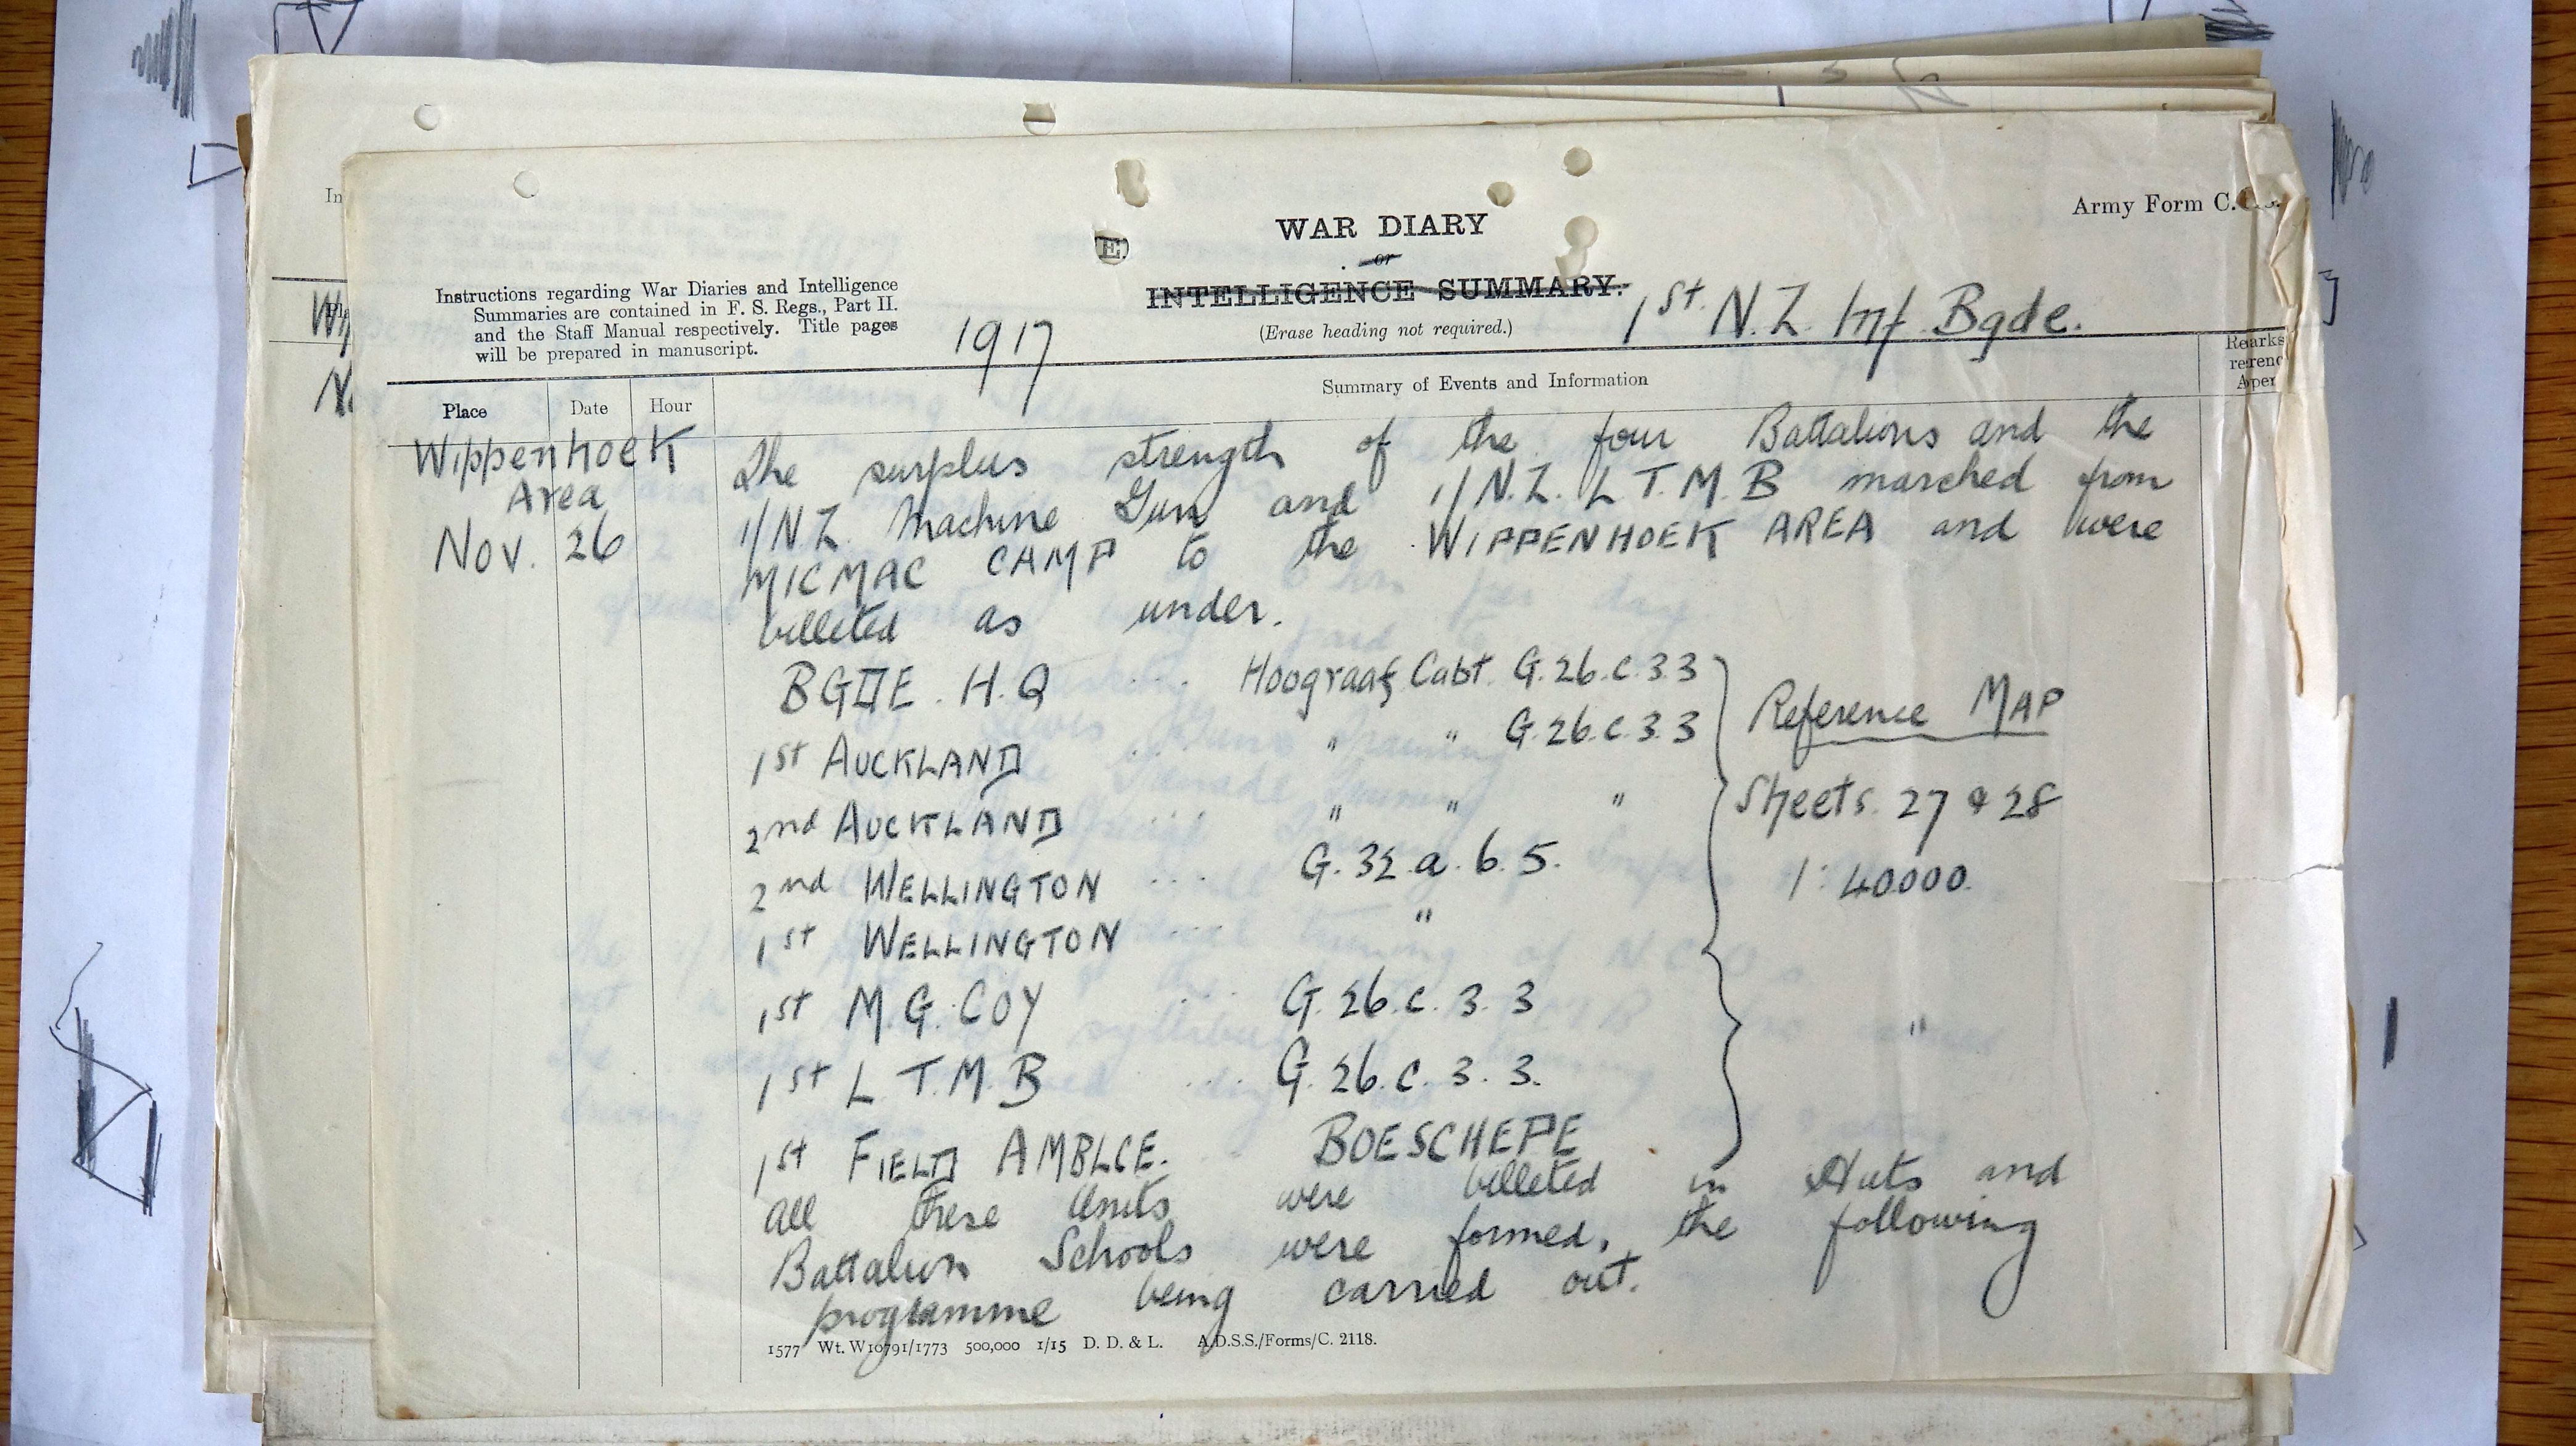 Army Form C.
WAR DIARY
or
INTELLIGENCE SUMMARY.
(Erase heading not required.)
Instructions regarding War Diaries and Intelligence
Summaries are contained in F. S. Regs., Part II.
and the Staff Manual respectively. Title pages
will be prepared in manuscript.
1917
1st N.Z. Inf. Bgde.
Place Date Hour Summary of Events and Information
Wippenhoek
Area
Nov. 26
The surplus strength of the four Battalions and the
1/N.Z. Machine Gun and 1/N.Z. L T.M.B marched from
MICMAC CAMP to the WIPPENHOEK AREA and were
billeted as under.
BGDE. H.Q .... Hoograaf Cabt. G.26.c.3.3
1st AUCKLAND ... " " G.26.c.3.3
2nd AUCKLAND .... " " "
2nd WELLINGTON .... G.32.a.6.5.
1st WELLINGTON .... "
1st M.G. COY ... G.26.c.3.3
1st L T.M.B .... G.26.c.3.3.
1st FIELD AMBLCE. .. BOESCHEPE
Reference MAP
Sheets. 27 & 28
1:40000.
"
All these Units were billeted in Huts and
Battalion Schools were formed, the following
programme being carried out.
1577 Wt. W10791/1773 500,000 1/15 D. D. & L. A.D.S.S./Forms/C. 2118.